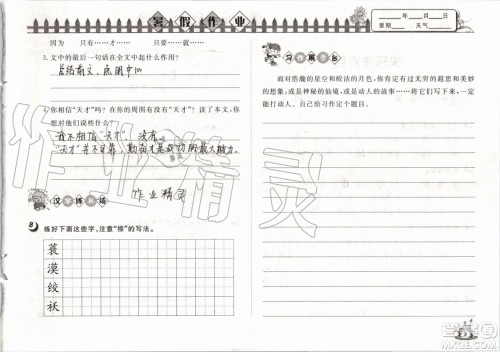 暑假作业
因为 只有……才…… 只要……就……
3. 文中的最后一句话在全文中起什么作用?
总结前文,点明中心
你相信“天才”吗?在你的周围有没有“天才”?读了本文,你
想对他们说些什么?
我不相信“天才”,没有
“天才”并不可靠,勤奋才是成功的最大动力。
作业精灵
汉字练习场
8 练好下面这些字,注意“捺”的写法。
蓑
漠
绞
袄
____年____月____日
星期____ 天气____
习作展示台
面对浩瀚的星空和皎洁的月色,你肯定有过无穷的遐想和美妙
的想象,或是神秘的传说,或是动人的故事……将它们写下来,一定
能打动人。自己给习作定个题目。
作业精灵